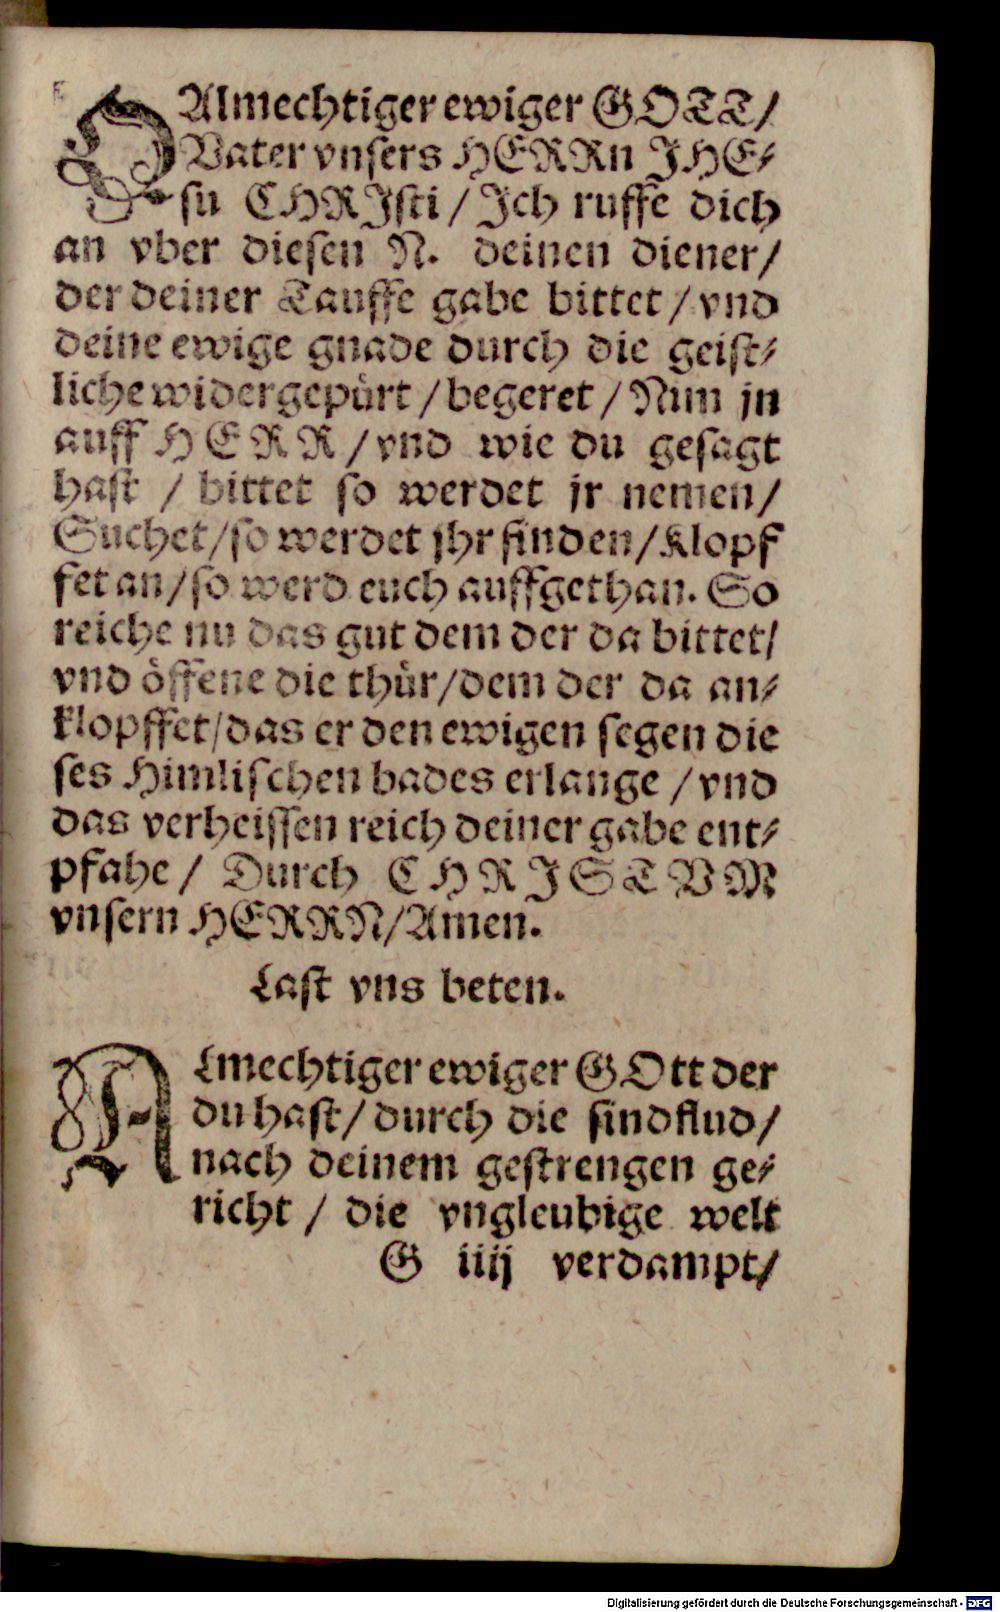 O Almechtiger ewiger GOTT/
Vater vnsers HERRn JHE⸗
su CHRJsti / Jch ruffe dich
an vber diesen N. deinen diener/
der deiner Tauffe gabe bittet / vnd
deine ewige gnade durch die geist⸗
liche widergepürt / begeret / Nim jn
auff HERR / vnd wie du gesagt
hast / bittet so werdet jr nemen/
Suchet/so werdet jhr finden/Klopf
fet an/so werd euch auffgethan. So
reiche nu das gut dem der da bittet/
vnd öffene die thür/dem der da an⸗
klopffet/das er den ewigen segen die
ses Himlischen bades erlange / vnd
das verheissen reich deiner gabe ent⸗
pfahe / Durch CHRJSTVM
vnsern HERRN/Amen.
Last vns beten.
ALmechtiger ewiger GOtt der
du hast/ durch die sindflud/
nach deinem gestrengen ge⸗
richt / die vngleubige welt
G iiij verdampt/
Digitalisierung gefördert durch die Deutsche Forschungsgemeinschaft - DFG